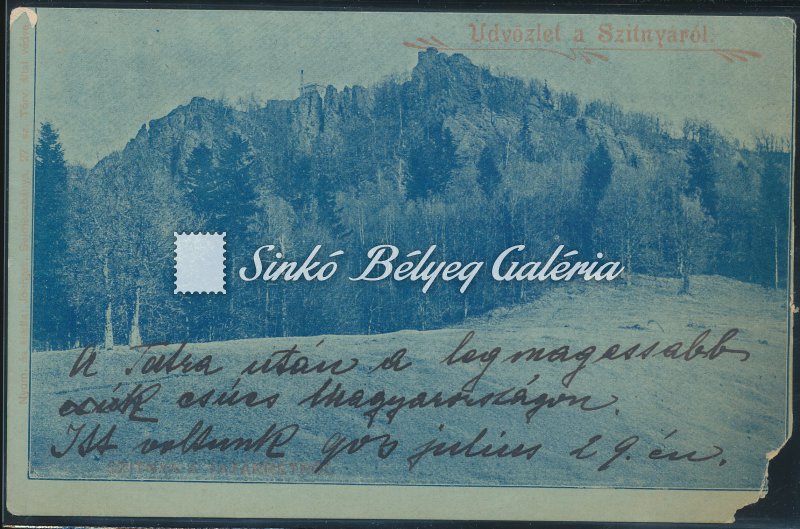 Üdvözlet a Szitnyáról.
Sinkó Bélyeg Galéria
A Tátra után a legmagassabb
csúcs Magyarországon.
Itt voltunk 903 julius 29.-én.